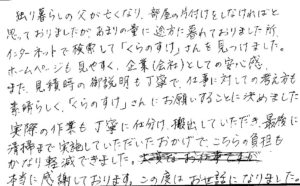 独り暮らしの父が亡くなり、部屋の片付けをしなければと
思っておりましたがあまりの量に途方に暮れておりました所、
インターネットで検索して「くらのすけ」さんを見つけました。
ホームページも見やすく、企業(会社)としての安心感、
また、見積時の御説明も丁寧で、仕事に対しての考え方も
素晴らしく、「くらのすけ」さんにお願いすることに決めました
実際の作業も丁寧に仕分け、搬出していただき、最後に
清掃まで実施していただいたおかげで、こちらの負担も
かなり軽減できました。
本当に感謝しております。この度はお世話になりました。